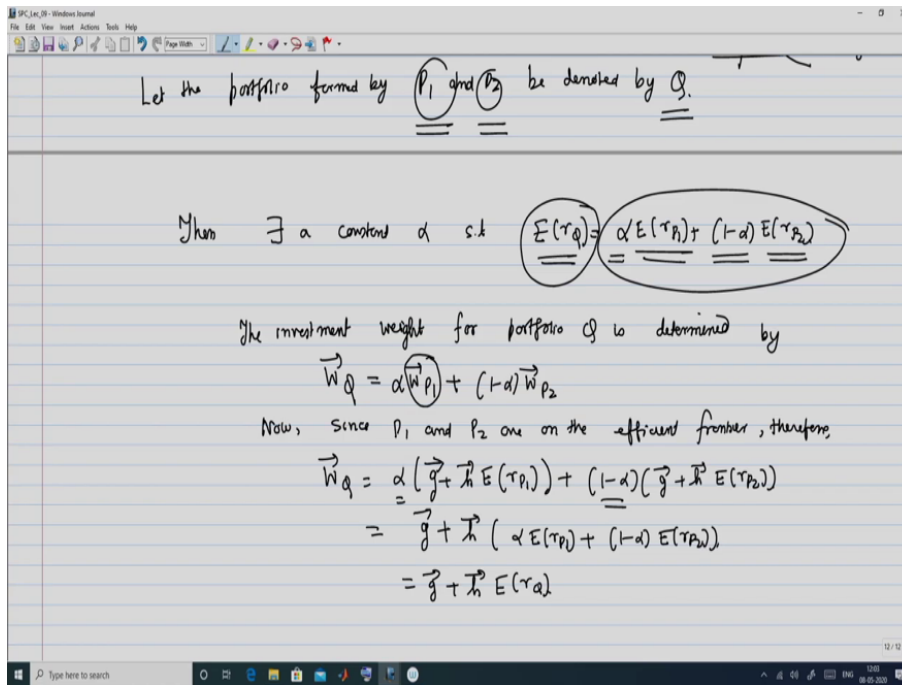 SPC_Lec_09 - Windows Journal
File Edit View Insert Actions Tools Help
Page Width
Let the portfolio formed by P₁ and P₂ be denoted by Q.
Then ∃ a constant α s.t E(r_Q) = α E(r_P₁) + (1-α) E(r_P₂)
The investment weight for portfolio Q is determined by
W⃗_Q = α W⃗_P₁ + (1-α) W⃗_P₂
Now, since P₁ and P₂ are on the efficient frontier, therefore,
W⃗_Q = α (g⃗ + h⃗ E(r_P₁)) + (1-α) (g⃗ + h⃗ E(r_P₂))
= g⃗ + h⃗ ( α E(r_P₁) + (1-α) E(r_P₂))
= g⃗ + h⃗ E(r_Q)
12 / 12
Type here to search
ENG
12:03
08-05-2020